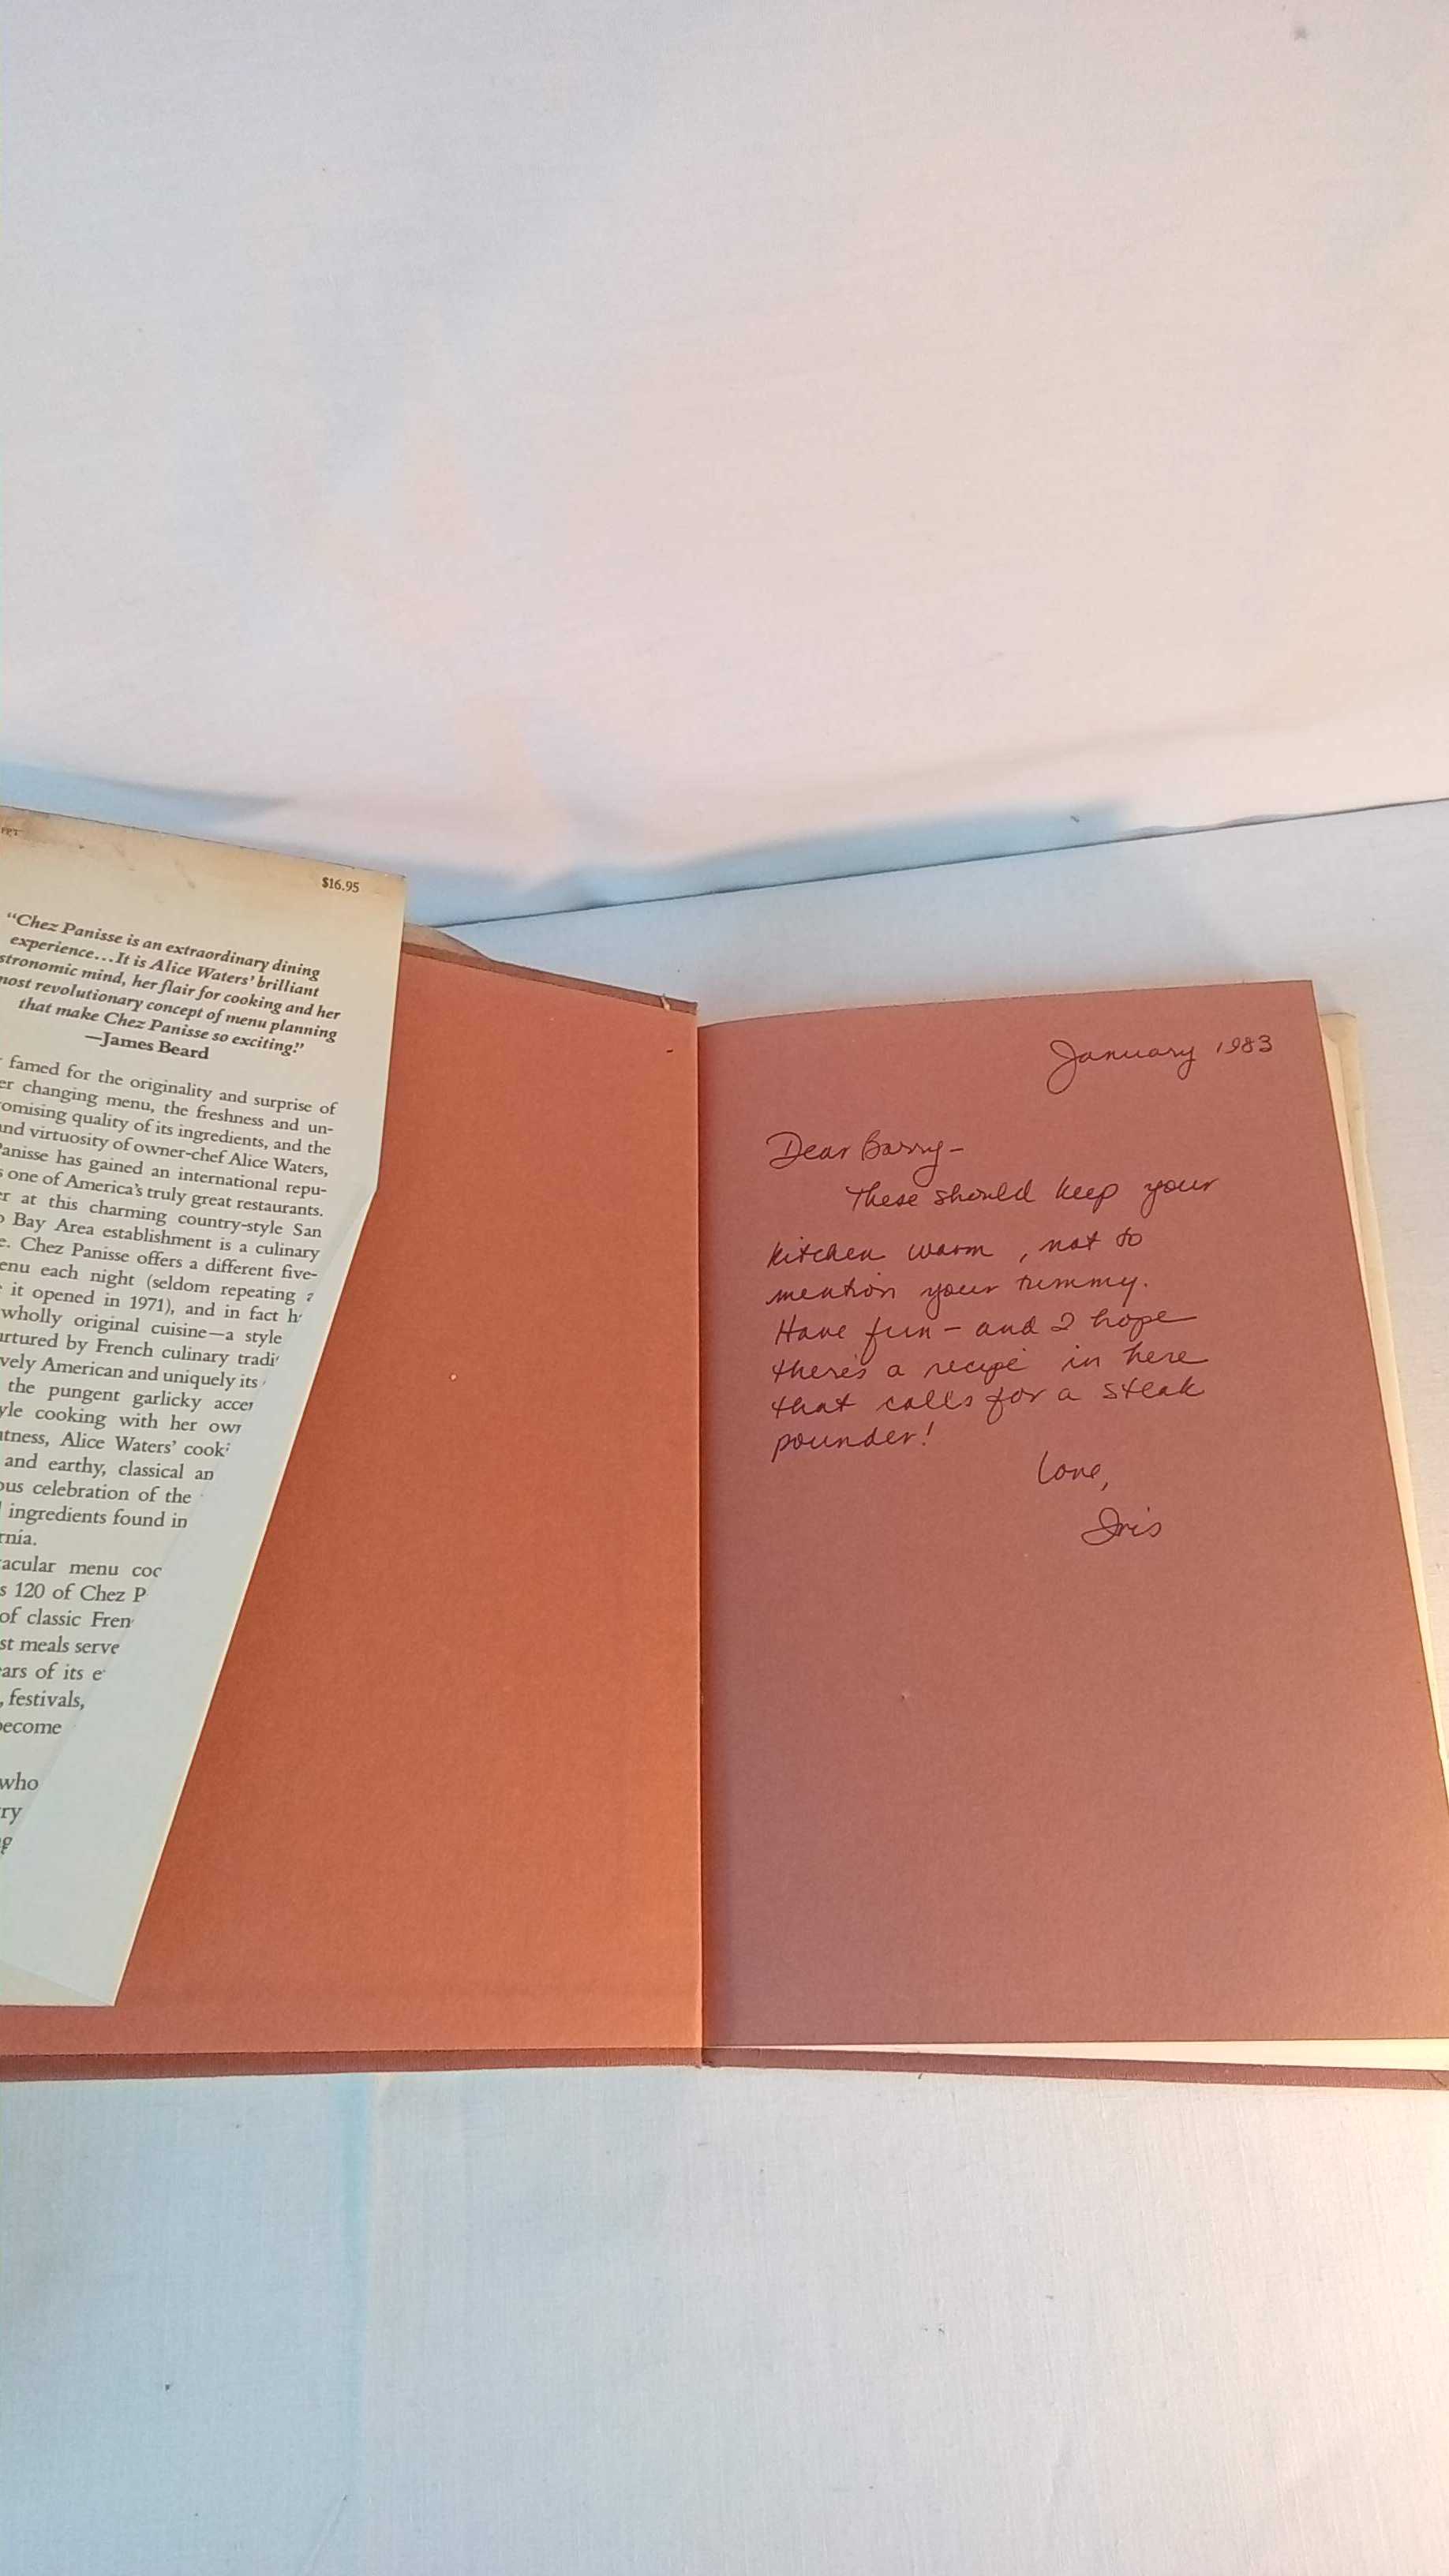 $16.95
"Chez Panisse is an extraordinary dining
experience...It is Alice Waters' brilliant
stronomic mind, her flair for cooking and her
most revolutionary concept of menu planning
that make Chez Panisse so exciting."
—James Beard
famed for the originality and surprise of
er changing menu, the freshness and un-
omising quality of its ingredients, and the
and virtuosity of owner-chef Alice Waters,
Panisse has gained an international repu-
s one of America's truly great restaurants.
er at this charming country-style San
o Bay Area establishment is a culinary
e. Chez Panisse offers a different five-
enu each night (seldom repeating
it opened in 1971), and in fact
wholly original cuisine—a style
urtured by French culinary tradi
vely American and uniquely its
the pungent garlicky accen
yle cooking with her own
tness, Alice Waters' cook
and earthy, classical an
ous celebration of the
ingredients found in
rnia.
acular menu coo
s 120 of Chez P
of classic Fren
st meals serve
ars of its e
, festivals,
become
who
ry
January 1983
Dear Barry–
These should keep your
kitchen warm, not to
mention your tummy.
Have fun – and I hope
there's a recipe in here
that calls for a steak
pounder!
Love,
Iris